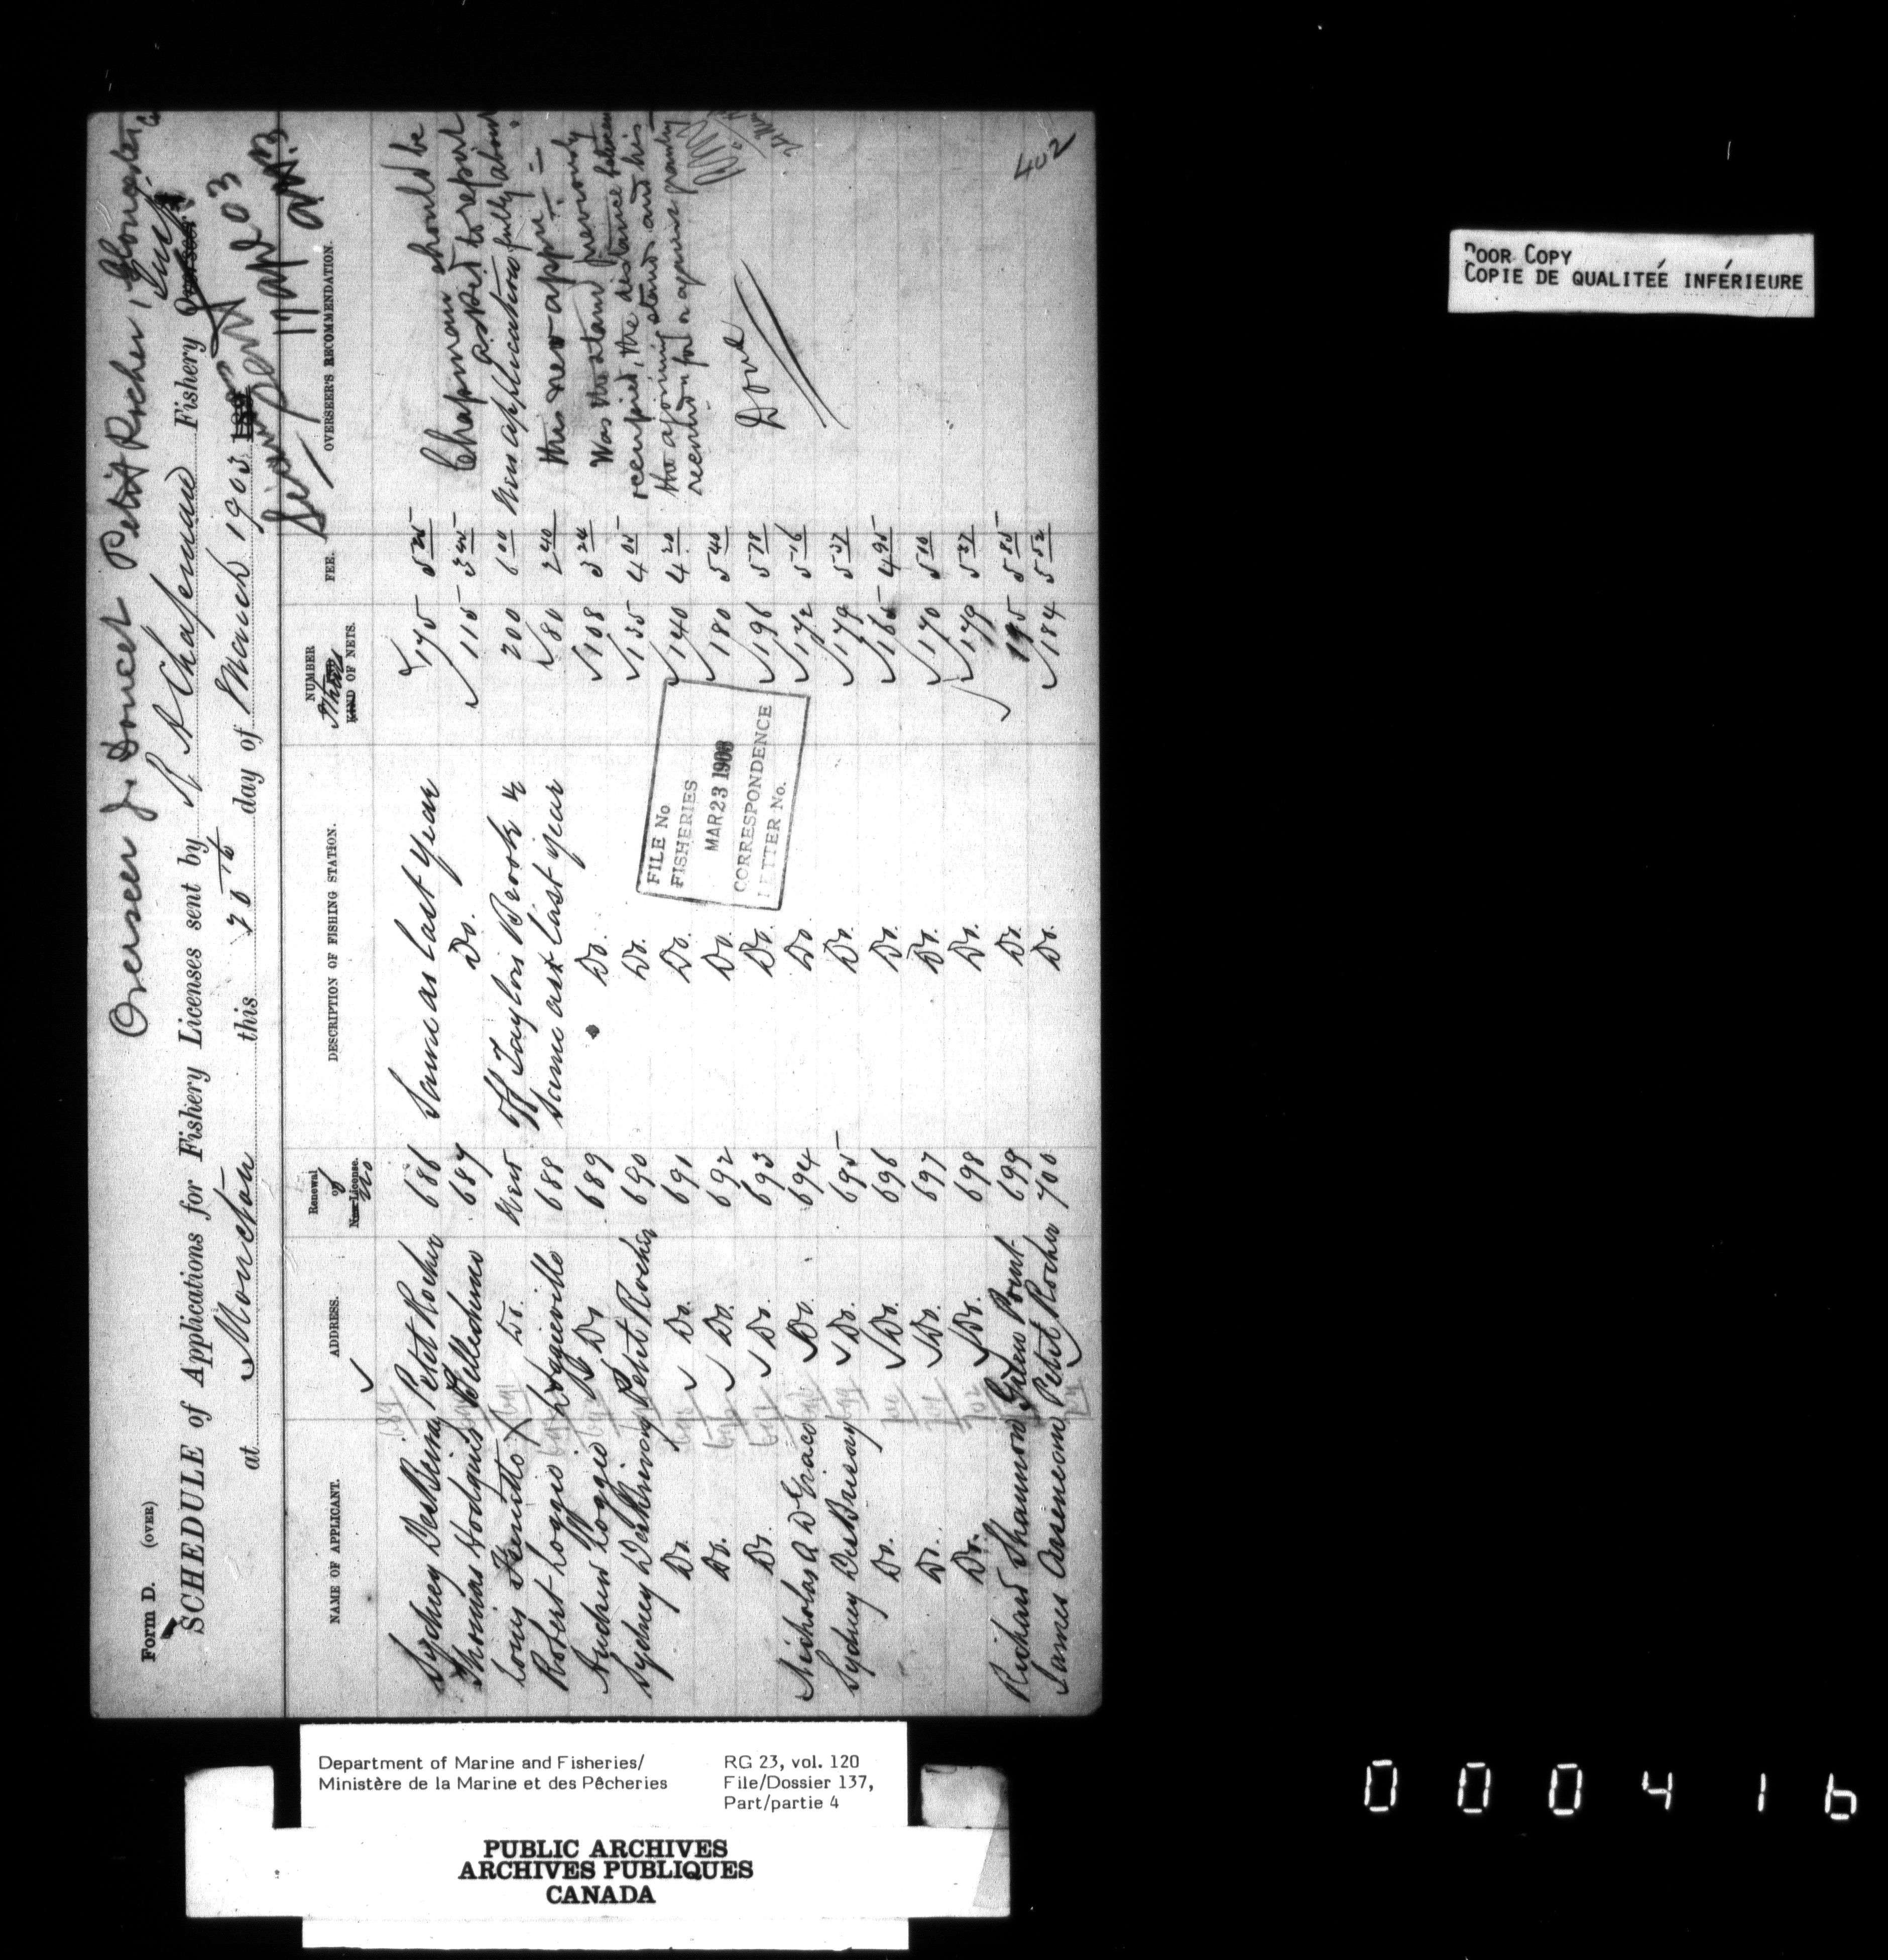 Overseer J. Doucet Petit Rocher, Gloucester,
Form D. (OVER)
SCHEDULE of Applications for Fishery Licenses sent by R A Chapman Fishery Overseer
at Moncton this 20th day of March 1903
17 Apl 03
NAME OF APPLICANT. ADDRESS. Renewal of New License. No DESCRIPTION OF FISHING STATION. NUMBER KIND OF NETS. FEE. OVERSEER'S RECOMMENDATION.
Sydney DesBrisay Petit Rocher 686 Same as last year 175 5 25
Thomas Hodgins Belledune 687 Do. 115 3 45 Chapman should be
Louis Do. New Off Taylors Brook 200 6 00 asked to report
Robert Loggie Loggieville 688 Same as last year 80 2 40 this application fully about
Andrew Loggie Do 689 Do. 108 3 24 this new appn.
Sydney DesBrisay Petit Rocher 690 Do. 135 4 05 Was the stand previously
Do. Do. 691 Do. 140 4 20 occupied, the distance between
Do. Do. 692 Do. 180 5 40 the ajoining stands and his
Do. Do. 693 Do. 196 5 78 recmdn for or against granting
Nicholas A DeGrace Do. 694 Do. 172 5 16 Done
Sydney DesBrisay Do. 695 Do. 179 5 37
Do. Do. 696 Do. 165 4 95
Do. Do. 697 Do. 170 5 10
Do. Do. 698 Do. 179 5 37
Richard Shannon Green Point 699 Do. 195 5 85
James Arseneau Petit Rocher 700 Do. 184 5 52
402
FILE No
FISHERIES
MAR 23 1903
CORRESPONDENCE
LETTER No.
POOR COPY
COPIE DE QUALITEÉ INFÉRIEURE
Department of Marine and Fisheries/
Ministère de la Marine et des Pêcheries
RG 23, vol. 120
File/Dossier 137,
Part/partie 4
PUBLIC ARCHIVES
ARCHIVES PUBLIQUES
CANADA
000416